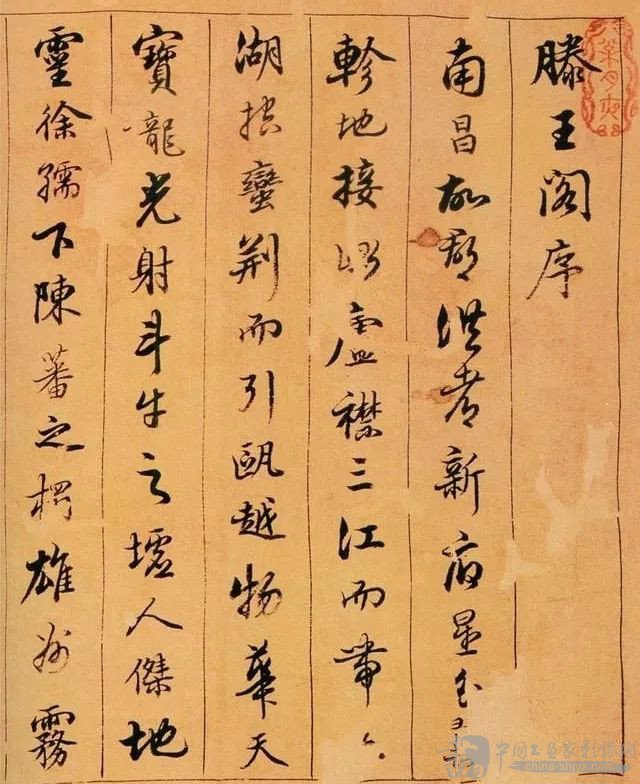 滕王閣序
南昌故郡洪都新府星分翼
軫地接衡廬襟三江而帶
湖控蠻荊而引甌越物華天
寶龍光射斗牛之墟人傑地
靈徐孺下陳蕃之榻雄州霧